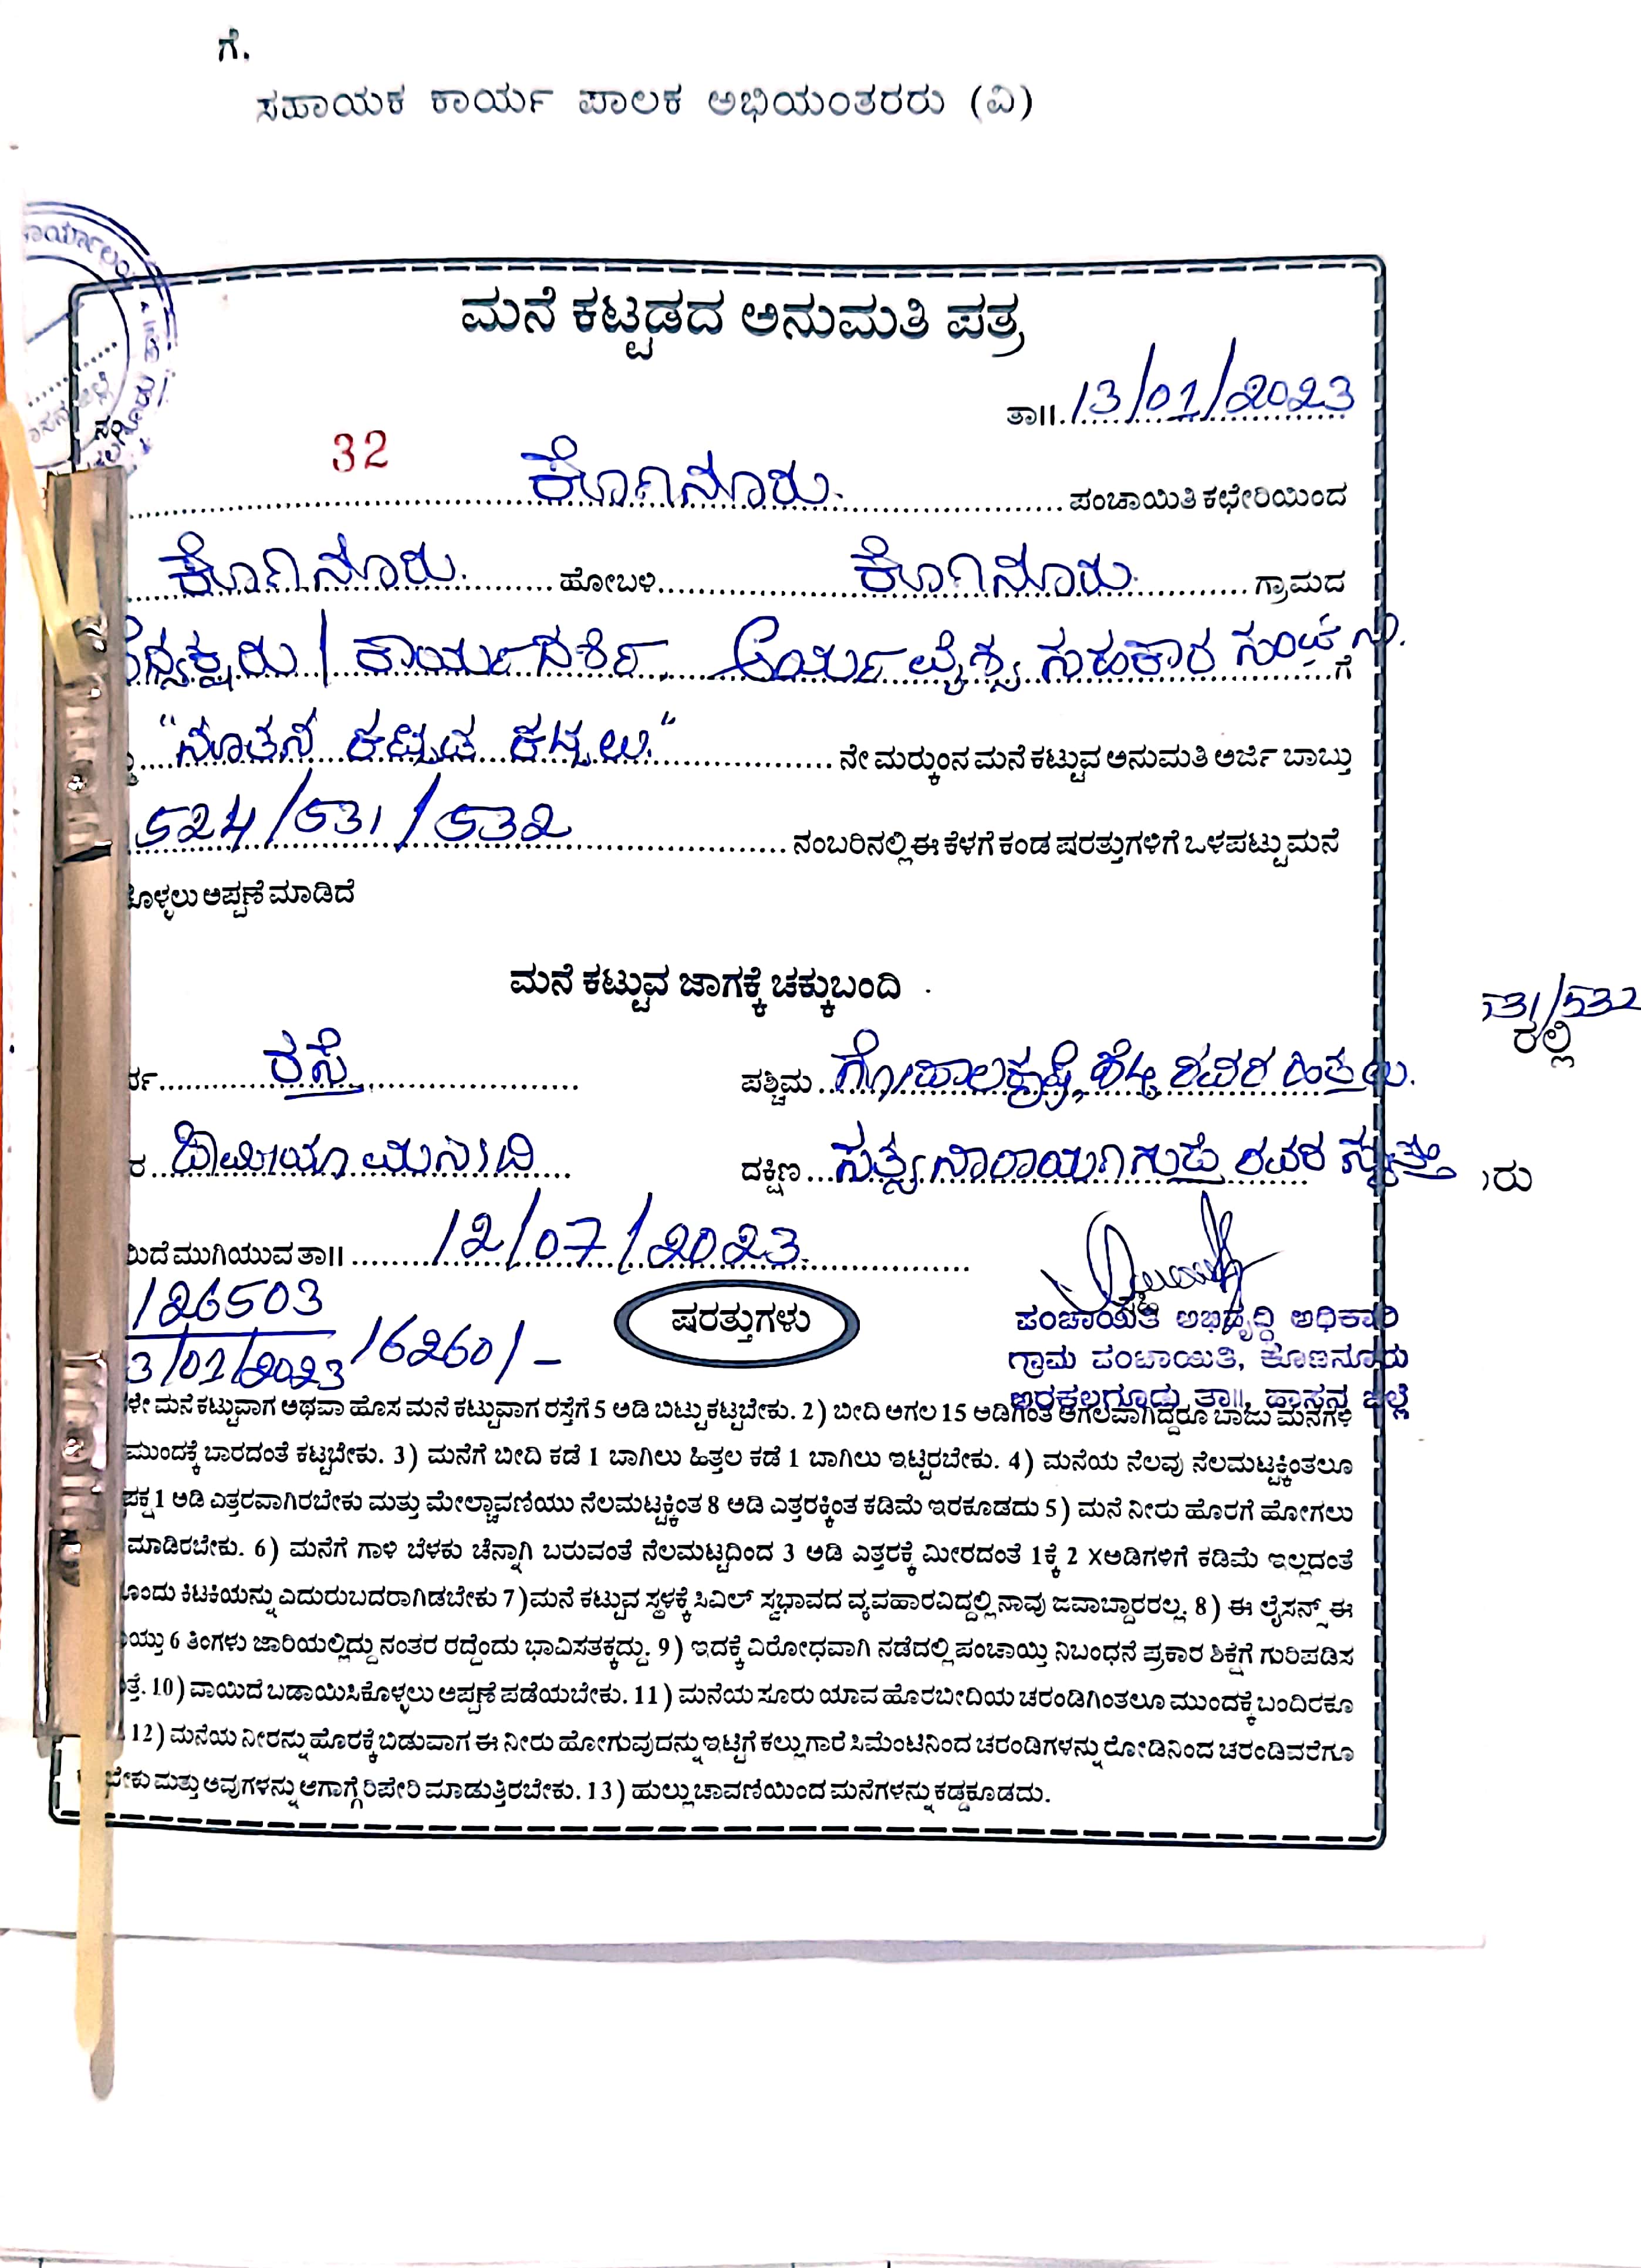 ಗೆ.
ಸಹಾಯಕ ಕಾರ್ಯ ಪಾಲಕ ಅಭಿಯಂತರರು (ವಿ)
ಮನೆ ಕಟ್ಟಡದ ಅನುಮತಿ ಪತ್ರ
ತಾ॥. 13/01/2023
32 ಕೊಣನೂರು. ಪಂಚಾಯಿತಿ ಕಛೇರಿಯಿಂದ
ಕೊಣನೂರು. ಹೋಬಳಿ ಕೊಣನೂರು. ಗ್ರಾಮದ
ಕಾರ್ಯದರ್ಶಿ, ಆರ್ಯವೈಶ್ಯ ಸಹಕಾರ ಸಂಘ ನಿ. ಗೆ
"ನೂತನ ಕಟ್ಟಡ ಕಟ್ಟಲು" ನೇ ಮರ್‍ಕುಂನ ಮನೆ ಕಟ್ಟುವ ಅನುಮತಿ ಅರ್ಜಿ ಬಾಬ್ತು
524/531/532 ನಂಬರಿನಲ್ಲಿ ಈ ಕೆಳಗೆ ಕಂಡ ಷರತ್ತುಗಳಿಗೆ ಒಳಪಟ್ಟು ಮನೆ
ಕೊಳ್ಳಲು ಅಪ್ಪಣೆ ಮಾಡಿದೆ
ಮನೆ ಕಟ್ಟುವ ಜಾಗಕ್ಕೆ ಚಕ್ಕುಬಂದಿ
531/532
ರಲ್ಲಿ
ರ್ವ ರಸ್ತೆ ಪಶ್ಚಿಮ ಗೋಪಾಲಕೃಷ್ಣ ಶೆಟ್ಟಿ ರವರ ಹಿತ್ತಲು.
ರ ದಕ್ಷಿಣ ಸತ್ಯನಾರಾಯಣಗುಪ್ತ ರವರ ಸ್ವತ್ತು
ರು
ಯಿದೆ ಮುಗಿಯುವ ತಾ॥ 12/07/2023.
126503
3/01/2023 16260/-
ಷರತ್ತುಗಳು
ಪಂಚಾಯಿತಿ ಅಭಿವೃದ್ಧಿ ಅಧಿಕಾರಿ
ಗ್ರಾಮ ಪಂಚಾಯಿತಿ, ಕೊಣನೂರು
ಅರಕಲಗೂಡು ತಾ॥, ಹಾಸನ ಜಿಲ್ಲೆ
ಳೇ ಮನೆ ಕಟ್ಟುವಾಗ ಅಥವಾ ಹೊಸ ಮನೆ ಕಟ್ಟುವಾಗ ರಸ್ತೆಗೆ 5 ಅಡಿ ಬಿಟ್ಟು ಕಟ್ಟಬೇಕು. 2) ಬೀದಿ ಅಗಲ 15 ಅಡಿಗಿಂತ ಅಗಲವಾಗಿದ್ದರೂ ಬಾಜು ಮನೆಗಳ
ಮುಂದಕ್ಕೆ ಬಾರದಂತೆ ಕಟ್ಟಬೇಕು. 3) ಮನೆಗೆ ಬೀದಿ ಕಡೆ 1 ಬಾಗಿಲು ಹಿತ್ತಲ ಕಡೆ 1 ಬಾಗಿಲು ಇಟ್ಟಿರಬೇಕು. 4) ಮನೆಯ ನೆಲವು ನೆಲಮಟ್ಟಕ್ಕಿಂತಲೂ
ಪಕ್ಷ 1 ಅಡಿ ಎತ್ತರವಾಗಿರಬೇಕು ಮತ್ತು ಮೇಲ್ಚಾವಣಿಯು ನೆಲಮಟ್ಟಕ್ಕಿಂತ 8 ಅಡಿ ಎತ್ತರಕ್ಕಿಂತ ಕಡಿಮೆ ಇರಕೂಡದು 5) ಮನೆ ನೀರು ಹೊರಗೆ ಹೋಗಲು
ಮಾಡಿರಬೇಕು. 6) ಮನೆಗೆ ಗಾಳಿ ಬೆಳಕು ಚೆನ್ನಾಗಿ ಬರುವಂತೆ ನೆಲಮಟ್ಟದಿಂದ 3 ಅಡಿ ಎತ್ತರಕ್ಕೆ ಮೀರದಂತೆ 1ಕ್ಕೆ 2 Xಅಡಿಗಳಿಗೆ ಕಡಿಮೆ ಇಲ್ಲದಂತೆ
ೊಂದು ಕಿಟಕಿಯನ್ನು ಎದುರುಬದರಾಗಿಡಬೇಕು 7)ಮನೆ ಕಟ್ಟುವ ಸ್ಥಳಕ್ಕೆ ಸಿವಿಲ್ ಸ್ವಭಾವದ ವ್ಯವಹಾರವಿದ್ದಲ್ಲಿ ನಾವು ಜವಾಬ್ದಾರರಲ್ಲ. 8) ಈ ಲೈಸನ್ಸ್ ಈ
ಯು 6 ತಿಂಗಳು ಜಾರಿಯಲ್ಲಿದ್ದು ನಂತರ ರದ್ದೆಂದು ಭಾವಿಸತಕ್ಕದ್ದು. 9) ಇದಕ್ಕೆ ವಿರೋಧವಾಗಿ ನಡೆದಲ್ಲಿ ಪಂಚಾಯ್ತಿ ನಿಬಂಧನೆ ಪ್ರಕಾರ ಶಿಕ್ಷೆಗೆ ಗುರಿಪಡಿಸ
ತ್ತೆ. 10) ವಾಯಿದೆ ಬಡಾಯಿಸಿಕೊಳ್ಳಲು ಅಪ್ಪಣೆ ಪಡೆಯಬೇಕು. 11) ಮನೆಯ ಸೂರು ಯಾವ ಹೊರಬೀದಿಯ ಚರಂಡಿಗಿಂತಲೂ ಮುಂದಕ್ಕೆ ಬಂದಿರಕೂ
12) ಮನೆಯ ನೀರನ್ನು ಹೊರಕ್ಕೆ ಬಿಡುವಾಗ ಈ ನೀರು ಹೋಗುವುದನ್ನು ಇಟ್ಟಿಗೆ ಕಲ್ಲು ಗಾರೆ ಸಿಮೆಂಟಿನಿಂದ ಚರಂಡಿಗಳನ್ನು ರೋಡಿನಿಂದ ಚರಂಡಿವರೆಗೂ
ಬೇಕು ಮತ್ತು ಅವುಗಳನ್ನು ಆಗಾಗ್ಗೆ ರಿಪೇರಿ ಮಾಡುತ್ತಿರಬೇಕು. 13) ಹುಲ್ಲು ಚಾವಣಿಯಿಂದ ಮನೆಗಳನ್ನು ಕಡ್ಡಕೂಡದು.